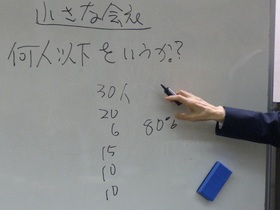 小さな会社
何人以下をいうか?
30人
20
6 80%
15
10
10